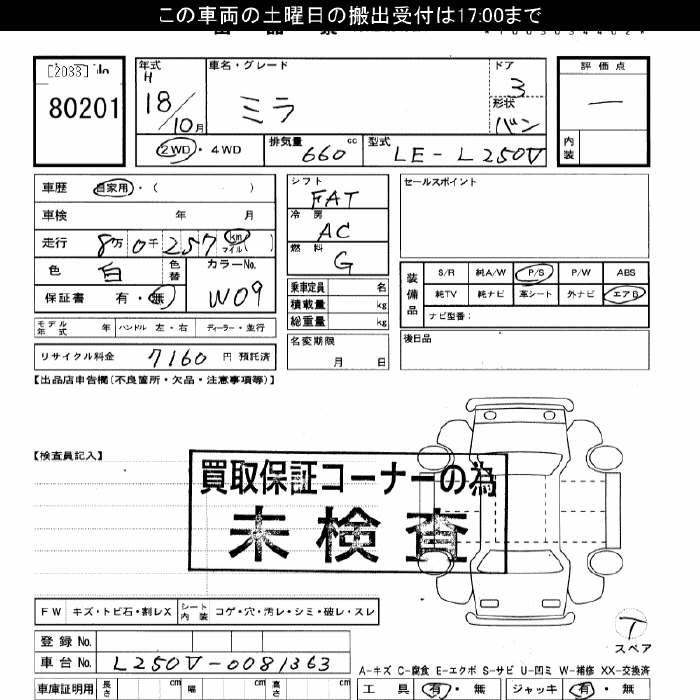 この車両の土曜日の搬出受付は17:00まで
[2033]
80201
年式 車名・グレード ドア 評価点
H
18/10月 ミラ 3 ー
形状
バン
2WD・4WD 排気量 660 cc 型式 LE-L250V 内装
車歴 自家用・( ) シフト FAT セールスポイント
車検 年 月 冷房 AC
走行 8万0千257 km マイル ( ) 燃料 G
色 白 色替 カラーNo. W09 乗車定員 名 装備品 S/R 純A/W P/S P/W ABS
保証書 有・無 積載量 kg 純TV 純ナビ 革シート 外ナビ エアB
総重量 kg ナビ型番:
モデル年式 年 ハンドル 左・右 ディーラー・並行 名変期限 月 日 後日品
リサイクル料金 7160 円 預託済
【出品店申告欄(不良箇所・欠品・注意事項等)】
【検査員記入】
買取保証コーナーの為
未検査
FW キズ・トビ石・割レX シート内装 コゲ・穴・汚レ・シミ・破レ・スレ
T
スペア
登録No.
車台No. L250V-0081363
A-キズ C-腐食 E-エクボ S-サビ U-凹ミ W-補修 XX-交換済
車庫証明用 長さ cm 幅 cm 高さ cm 工具 有・無 ジャッキ 有・無